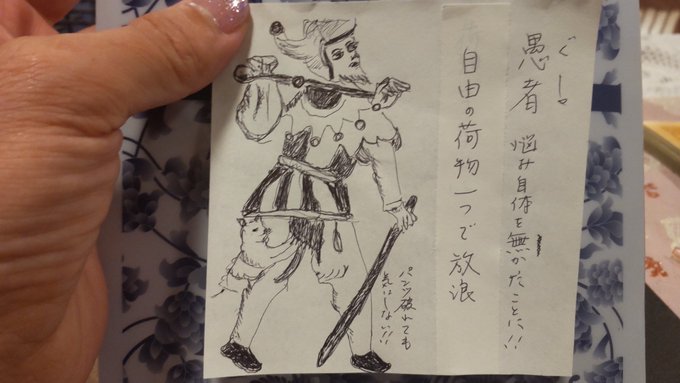 ぐー!
愚者 悩み自体を無かったことに!!
自由の荷物一つで放浪
パンツ破れても
気にしない!!